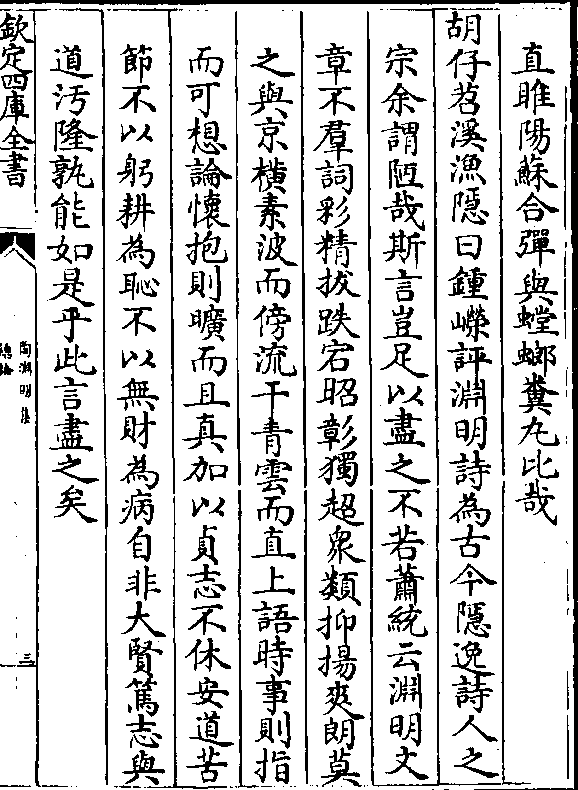 直睢陽蘇合彈與螳螂糞丸比哉
胡仔苕溪漁隱曰鍾嶸評淵明詩為古今隱逸詩人之
宗余謂陋哉斯言豈足以盡之不若蕭統云淵明文
章不羣詞彩精拔跌宕昭彰獨超衆類抑揚爽朗莫
之與京橫素波而傍流干青雲而直上語時事則指
而可想論懷抱則曠而且真加以貞志不休安道苦
節不以躬耕為恥不以無財為病自非大賢篤志與
道汚隆孰能如是乎此言盡之矣
欽定四庫全書
陶淵明集
總論
三